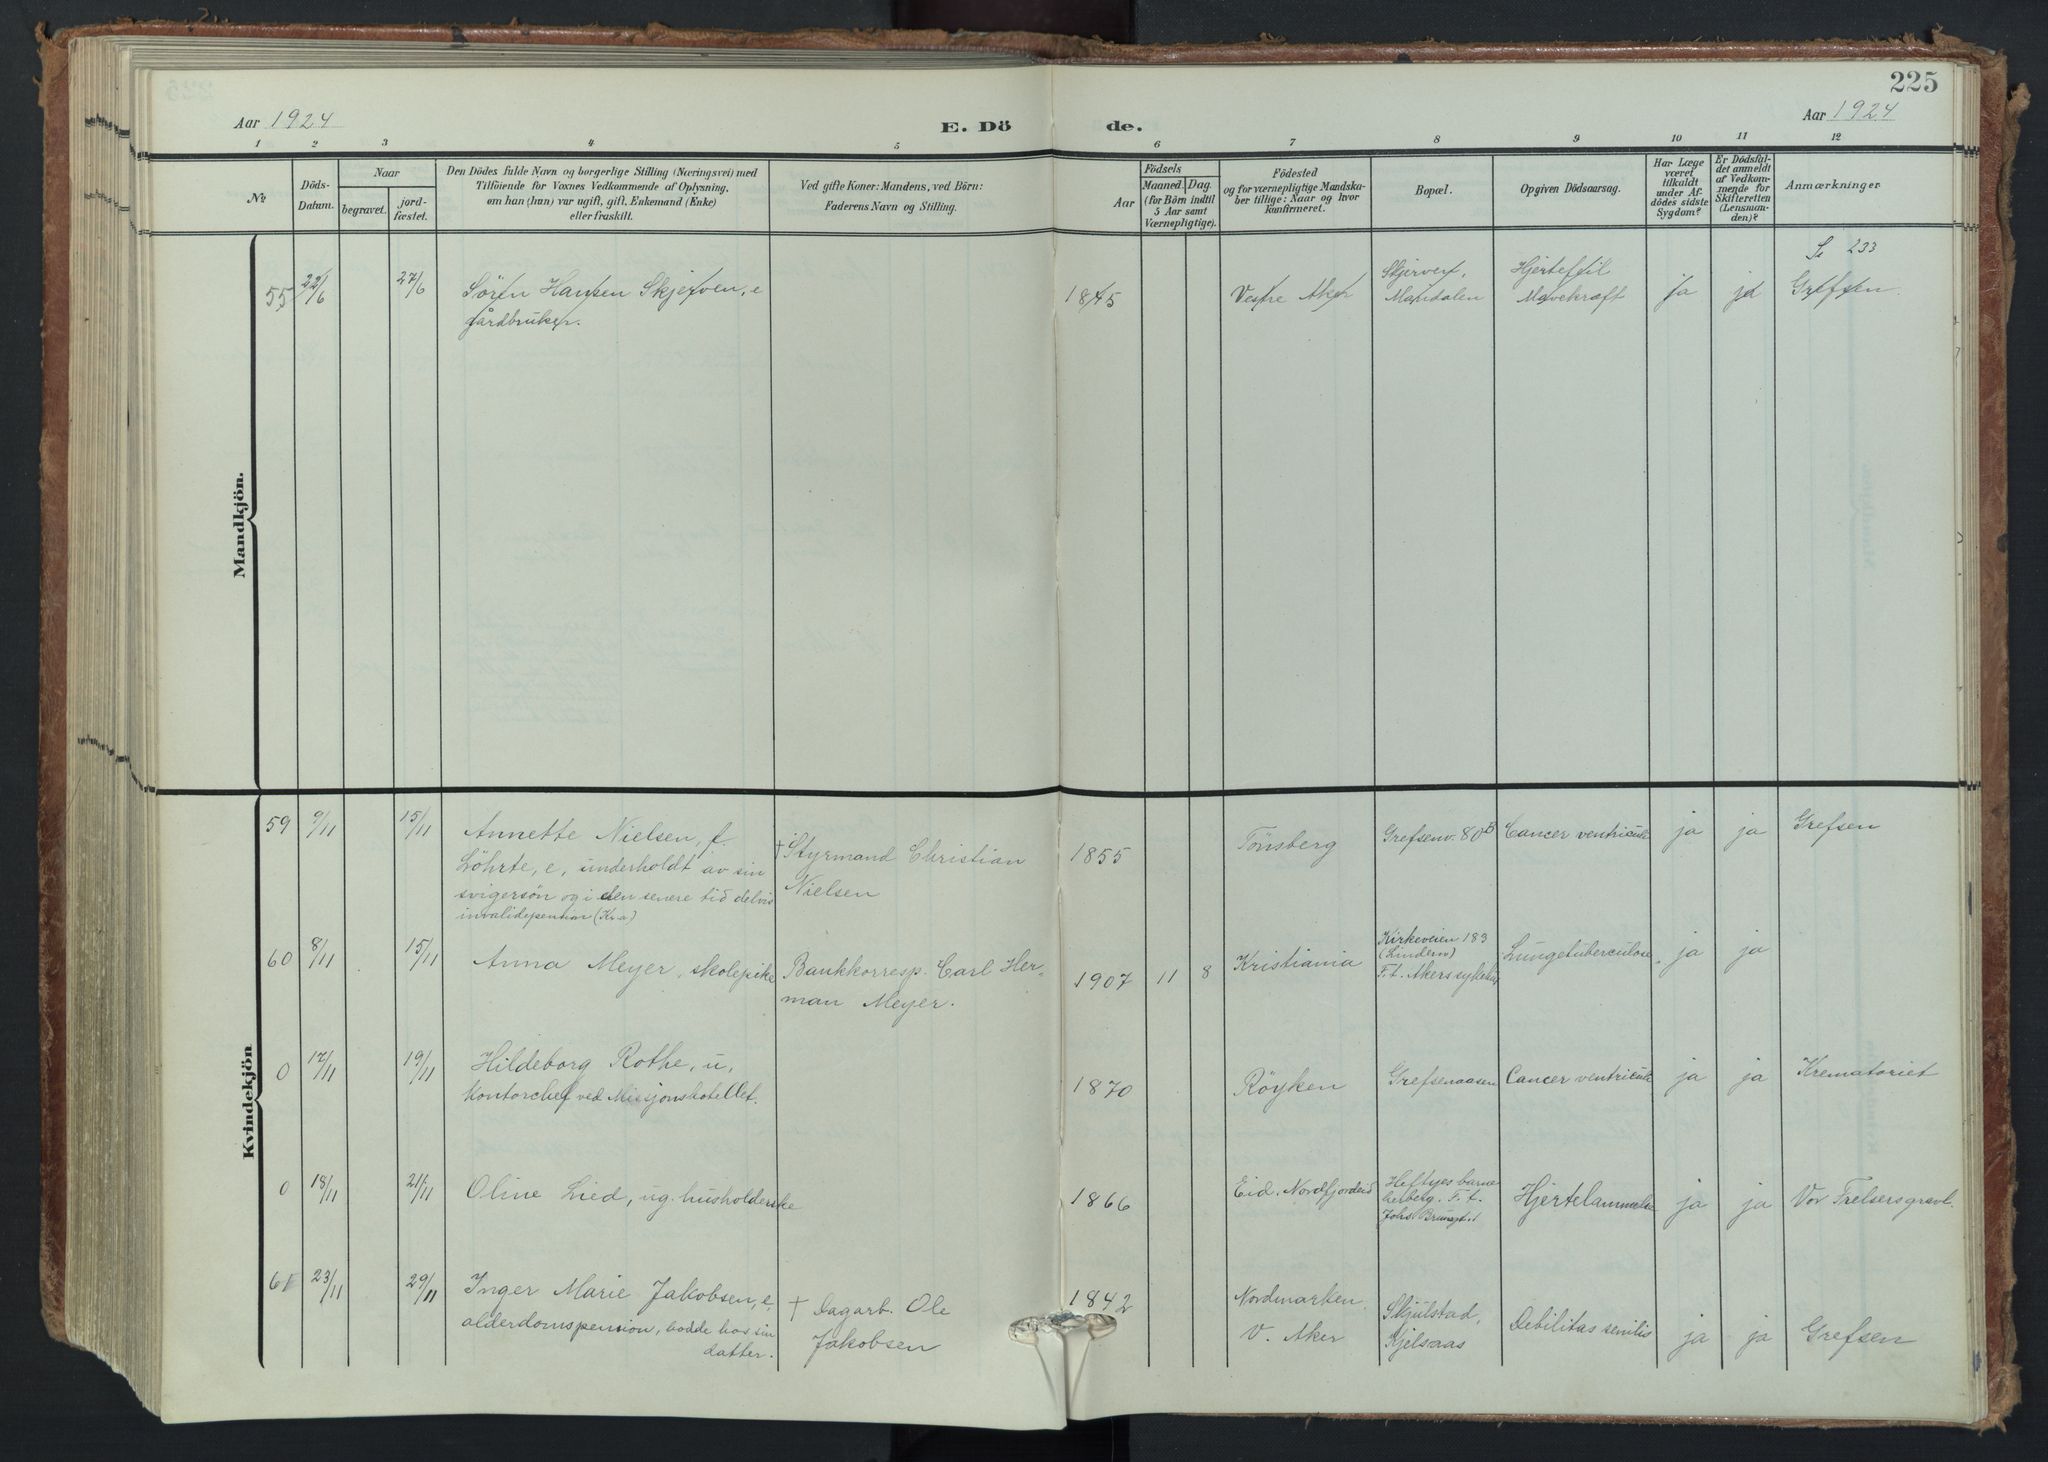 225
Aar 1924
E. Dö
de.
Aar 1924
1 2 3 4 5 6 7 8 9 10 11 12
№
Döds-
Datum.
Naar
begravet.
jord-
fæstet.
Den Dödes fulde Navn og borgerlige Stilling (Næringsvei) med
Tilföiende for Voxnes Vedkommende af Oplysning,
om han (hun) var ugift, gift, Enkemand (Enke)
eller fraskilt.
Ved gifte Koner: Mandens, ved Börn:
Faderens Navn og Stilling.
Födsels
Aar
Maaned. Dag.
(for Börn indtil
5 Aar samt
Værnepligtige).
Födested
og for værnepligtige Mandska-
ber tillige: Naar og hvor
konfirmeret.
Bopæl.
Opgiven Dödsaarsag.
Har Læge
været
tilkaldt
under Af-
dödes sidste
Sygdom?
Er Dödsfal-
det anmeldt
af Vedkom-
mende for
Skifteretten
(Lensman-
den)?
Anmærkninger
Mandkjön.
Se 233
55 22/6 27/6 Sören Hansen Skjerven, e
gårdbruker.
1845 Vestre Aker
Skjerven,
Maridalen
Hjertefeil
Mavekræft
ja ja Grefsen.
Kvindekjön
59 9/11 15/11 Annette Nielsen, f.
Löhrte, e, underholdt av sin
svigersön og i den senere tid delvis
invalidepension (Kra)
† Styrmand Christian
Nielsen
1855 Tönsberg Grefsenv. 80B Cancer ventriculi ja ja Grefsen
60 8/11 15/11 Anna Meyer, skolepike
Bankkorresp. Carl Her-
man Meyer.
1907 11 8 Kristiania
Kirkeveien 183
(Lindern)
F. t. Akers sykehus
Lungetuberculose ja ja
0 17/11 19/11 Hildeborg Rothe, u,
kontorchef ved Missjonshotellet.
1870 Röyken Grefsenaasen Cancer ventriculi ja ja Krematoriet
0 18/11 21/11 Oline Lied, ug. husholderske
1866 Eid, Nordfjordeid
Heftyes barne
herberg. F. t.
Hjertelammelse ja ja Vor Frelsers gravl.
61 23/11 29/11 Inger Marie Jakobsen, e,
alderdomspension, bodde hos sin
datter.
† Dagarb. Ole
Jakobsen
1842 Nordmarken
V. Aker
Skjulstad,
Kjelsaas
Debilitas senilis ja ja Grefsen